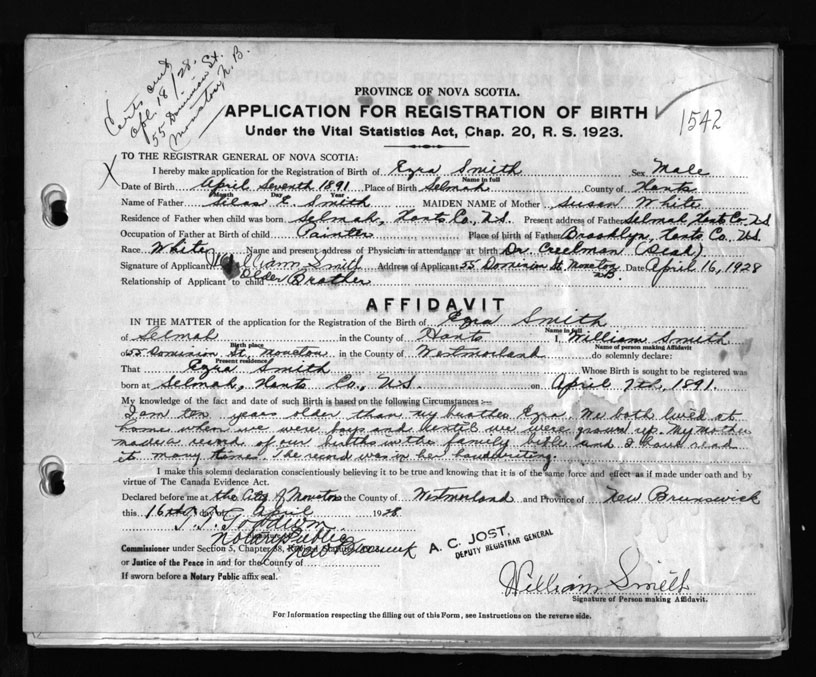 Certs out
Apl 18/28.
55 Dominion St.
Moncton, N. B.
PROVINCE OF NOVA SCOTIA.
APPLICATION FOR REGISTRATION OF BIRTH
1542
Under the Vital Statistics Act, Chap. 20, R. S. 1923.
X TO THE REGISTRAR GENERAL OF NOVA SCOTIA:
I hereby make application for the Registration of Birth of Ezra Smith Sex Male
Name in full
Date of Birth April Seventh 1891 Place of Birth Selmah County of Hants
Month Day Year
Name of Father Silas E. Smith MAIDEN NAME of Mother Susan White
Residence of Father when child was born Selmah, Hants Co., N.S. Present address of Father Selmah, Hants Co. N.S
Occupation of Father at Birth of child Painter Place of birth of Father Brooklyn, Hants Co., N.S.
Race. White Name and present address of Physician in attendance at birth Dr. Creelman (Dead)
Signature of Applicant William Smith Address of Applicant 55 Dominion St, Moncton, N.B. Date April 16, 1928
Relationship of Applicant to child Older Brother
AFFIDAVIT
IN THE MATTER of the application for the Registration of the Birth of Ezra Smith
Name in full
of Selmah in the County of Hants I, William Smith
Birth place Name of person making Affidavit
of 55 Dominion St., Moncton in the County of Westmorland do solemnly declare:
Present residence
That Ezra Smith Whose Birth is sought to be registered was
born at Selmah, Hants Co., N.S. on April 7th, 1891.
My knowledge of the fact and date of such Birth is based on the following Circumstances :—
I am ten years older than my brother Ezra. We both lived at
home when we were boys and until we were grown up. My mother
made a record of our births in the family bible and I have read
it many times. The record was in her handwriting.
I make this solemn declaration conscientiously believing it to be true and knowing that it is of the same force and effect as if made under oath and by
virtue of The Canada Evidence Act.
Declared before me at the City of Moncton the County of Westmorland and Province of New Brunswick
this 16th day of April 1928.
Goodwin
Notary Public
Commissioner under Section 5, Chapter 38, New Brunswick
A. C. JOST,
DEPUTY REGISTRAR GENERAL
or Justice of the Peace in and for the County of
William Smith
If sworn before a Notary Public affix seal.
Signature of Person making Affidavit.
For Information respecting the filling out of this Form, see Instructions on the reverse side.